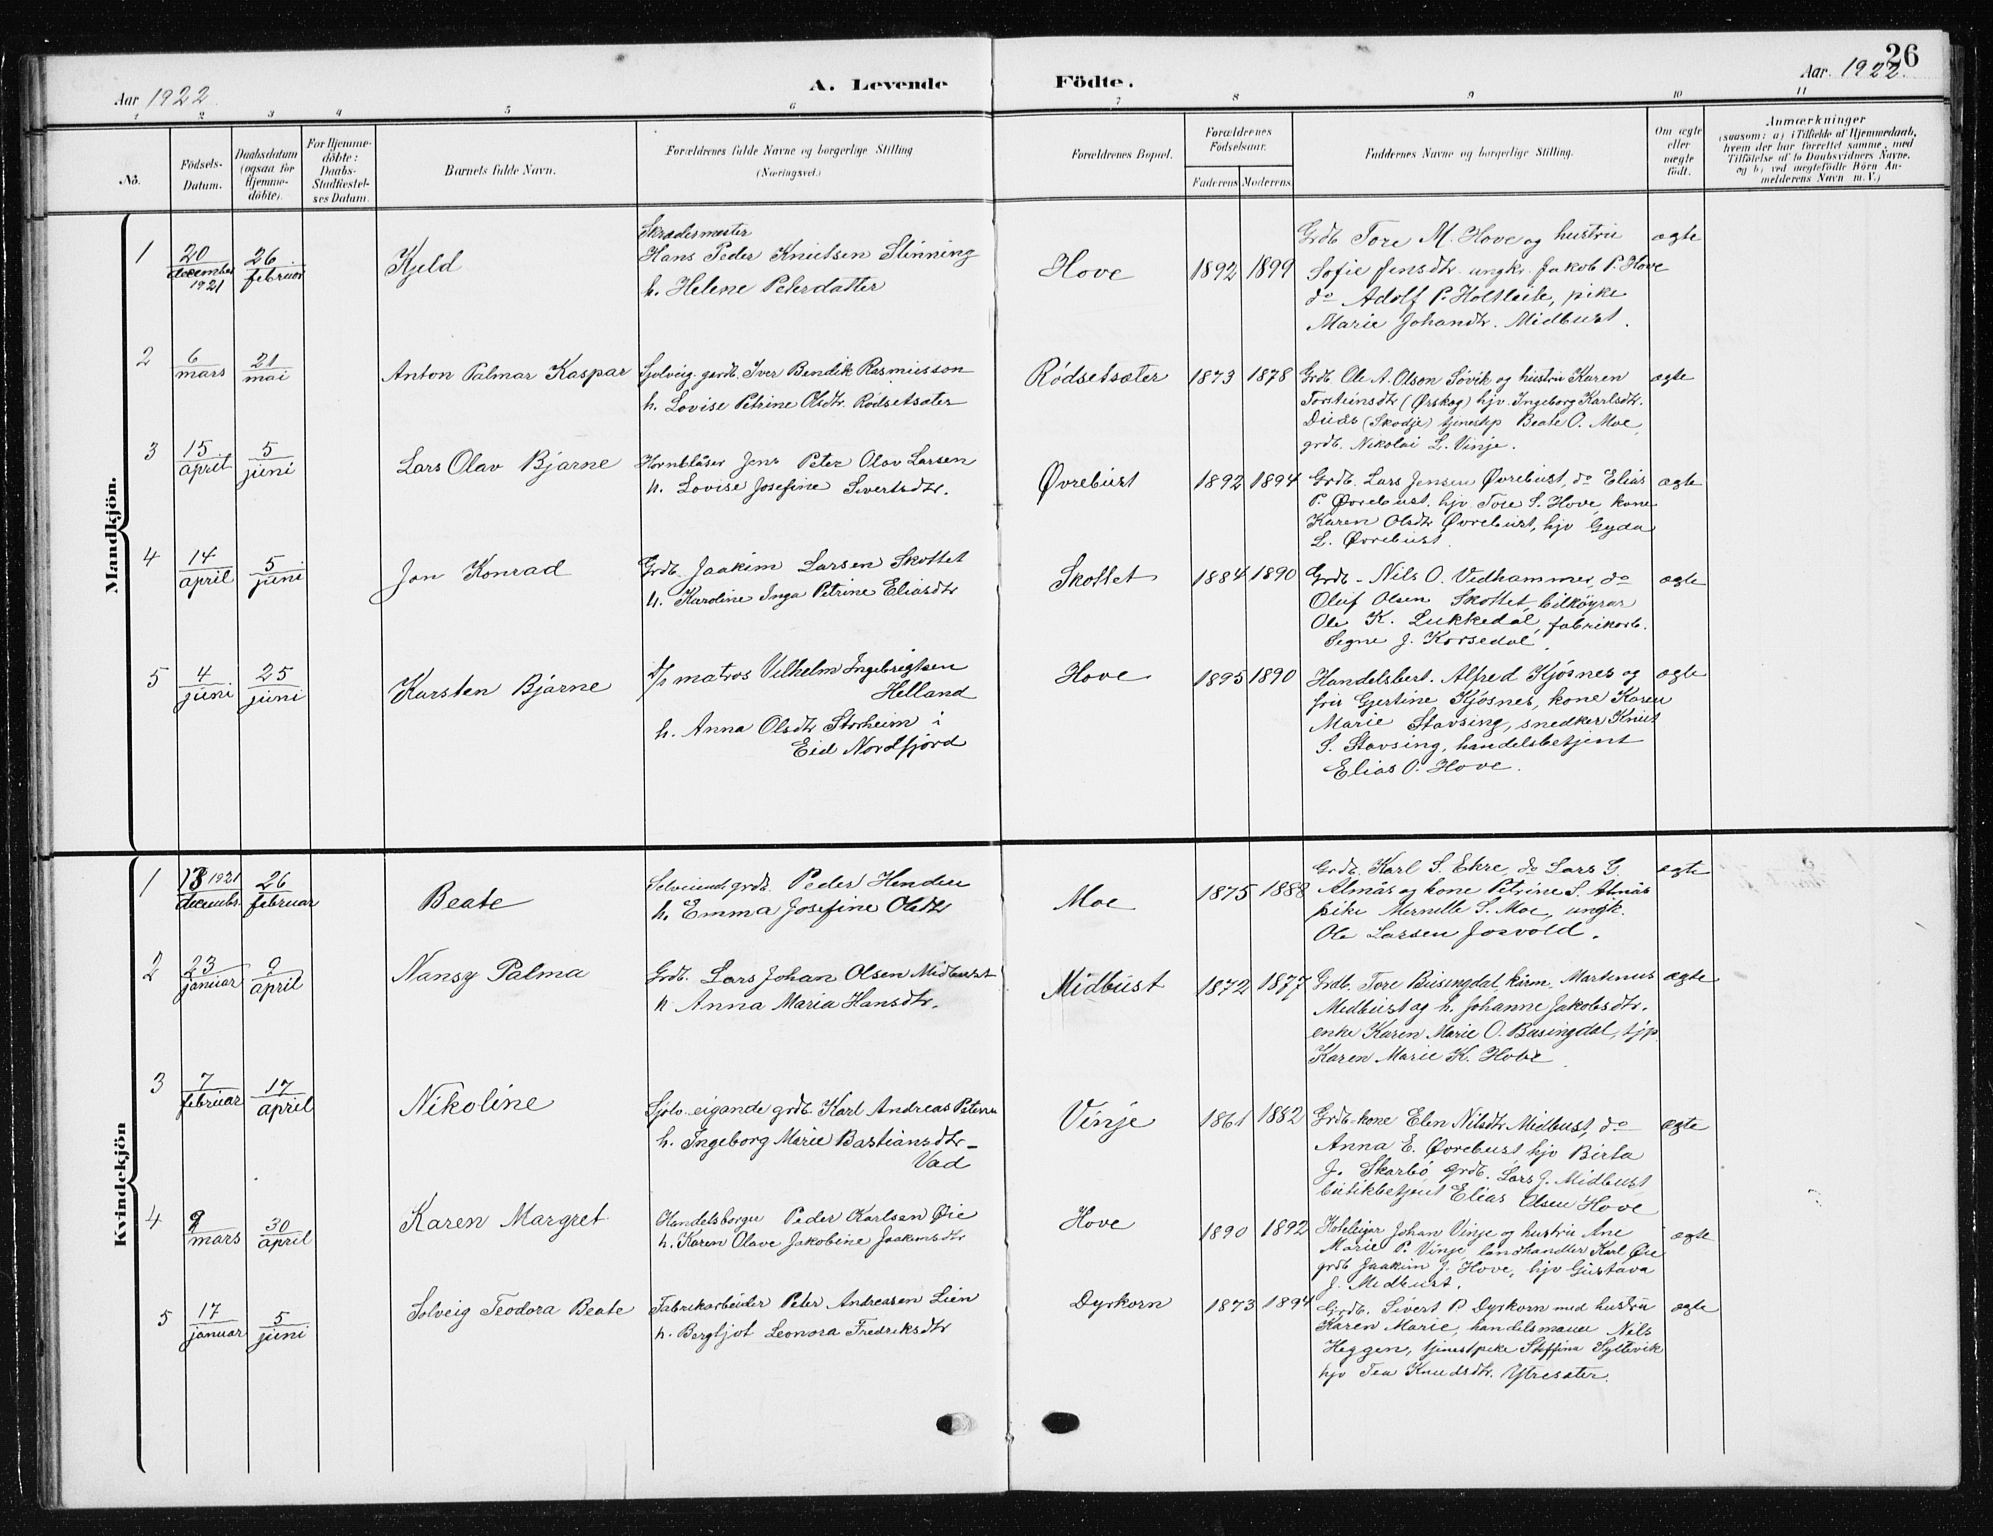 26
Aar 1922
A. Levende Födte.
Aar 1922
1 2 3 4 5 6 7 8 9 10 11
No.
Födsels-
Datum.
Daabsdatum
(ogsaa for
Hjemme-
döbte).
For Hjemme-
döbte:
Daabs-
Stadfæstel-
ses Datum.
Barnets fulde Navn.
Forældrenes fulde Navne og borgerlige Stilling
(Næringsvei.)
Forældrenes Bopæl.
Forældrenes
Födselsaar.
Faderens Moderens
Faddernes Navne og borgerlige Stilling.
Om ægte
eller
uægte
födt.
Anmærkninger
(saasom: a) i Tilfælde af Hjemmedaab,
hvem der har forrettet samme, med
Tilföielse af to Daabsvidners Navne,
og b) ved uægtefödte Börn An-
melderens Navn m. V.)
Mandkjön.
1
20
december
1921
26
februar
Kjeld
Skrædermester
Hans Peder Knutsen Stinning
h. Helene Petersdatter
Hove
1892 1899
Grdb. Tore M. Hove og hustru
Sofie Jensdtr. ungkr. Jakob P. Hove
do Adolf P. Holtleite, pike
Marie Johandtr. Midbust.
ægte
2
6
mars
21
mai
Anton Palmar Kaspar
Sjølveig. gardb. Iver Bendik Rasmusson
h. Lovise Petrine Olsdtr. Rødsetsæter
Rødsetsæter
1873 1878
Grdb. Ole A. Olson Søvik og hustru Karen
Torsteinsdtr (Ørskog) hjv. Ingeborg Karlsdtr.
(Skodje) tjenestp Beate O. Moe,
grdb. Nikolai L. Vinje.
ægte
3
15
april
5
juni
Lars Olav Bjarne
Hornblåser Jens Peter Olav Larsen
h. Lovise Josefine Sivertsdtr.
Øvrebust
1892 1894
Grdb. Lars Jensen Øvrebust, do Elias
P. Øvrebust, hjv. Tore S. Hove, kone
Karen Olsdtr Øvrebust, hjv Gyda
L. Øvrebust
ægte
4
14
april
5
juni
Jon Konrad
Grdb. Jaakim Larsen Skottet
h. Karoline Inga Petrine Eliasdtr
Skottet
1884 1890
Grdb. Nils O. Vidhammer, do
Oluf Olsen Skottet, bilkøyrar
Ole K. Lukkedal, fabrikarb.
Signe J. Korsedal.
ægte
5
4
juni
25
juni
Karsten Bjarne
d/s matros Vilhelm Ingebrigtsen
Helland
h. Anna Olsdtr Storheim i
Eid Nordfjord
Hove
1895 1890
Handelsbest. Alfred Kjøsnes og
fru Gjertine Kjøsnes, kone Karen
Marie Stavsing, snedker Knut
S. Stavsing, handelsbetjent
Elias O. Hove.
ægte
Kvindekjön
1
13 1921
decembr.
26
februar
Beate
Selveiende grdb. Peder Henden
h. Emma Josefine Olsdtr
Moe
1875 1888
Grdb. Karl S. Ekre, do Lars G.
Almås og kone Petrine S. Almås
pike Mernelle S. Moe, ungk.
Ole Larsen Josvold.
ægte
2
23
januar
9
april
Nansy Palma
Grdb. Lars Johan Olsen Midbust
h Anna Maria Hansdtr.
Midbust
1872 1877
Grdb. Tore Busengdal, kårm. Martinus
Midbust og h. Johanne Jakobsdtr.
enke Karen Marie O. Busingdal, tjp
Karen Marie K. Hove
ægte
3
7
februar
17
april
Nikoline
Sjølv-eigande grdb. Karl Andreas Petersen
h. Ingeborg Marie Bastiansdtr-
Vad
Vinje
1861 1882
Grdb-kone Elen Nilsdtr Midbust, do
Anna E. Øvrebust hjv Birta
J. Skarbø, grdb. Lars J. Midbust,
butikbetjent Elias Olsen Hove
ægte
4
9
mars
30
april
Karen Margret
Handelsborger Peder Karlsen Øie
h. Karen Olave Jakobine Jaakimsdtr
Hove
1890 1892
Hoteleier Johan Vinje og hustru Ane
Marie P. Vinje, landhandler Karl Øie
grdb Jaakim J. Hove, hjv Gustava
J. Midbust.
ægte
5
17
januar
5
juni
Solveig Teodora Beate
Fabrikarbeider Peter Andreassen Lien
h. Bergljot Leonora Fredriksdtr
Dyrkorn
1873 1894
Grdb. Sivert P. Dyrkorn med hustru
Karen Marie, handelsmann Nils
Heggen, tjenestpike Steffina Syltevik
hjv Tea Knudsdtr. Ytresæter.
ægte